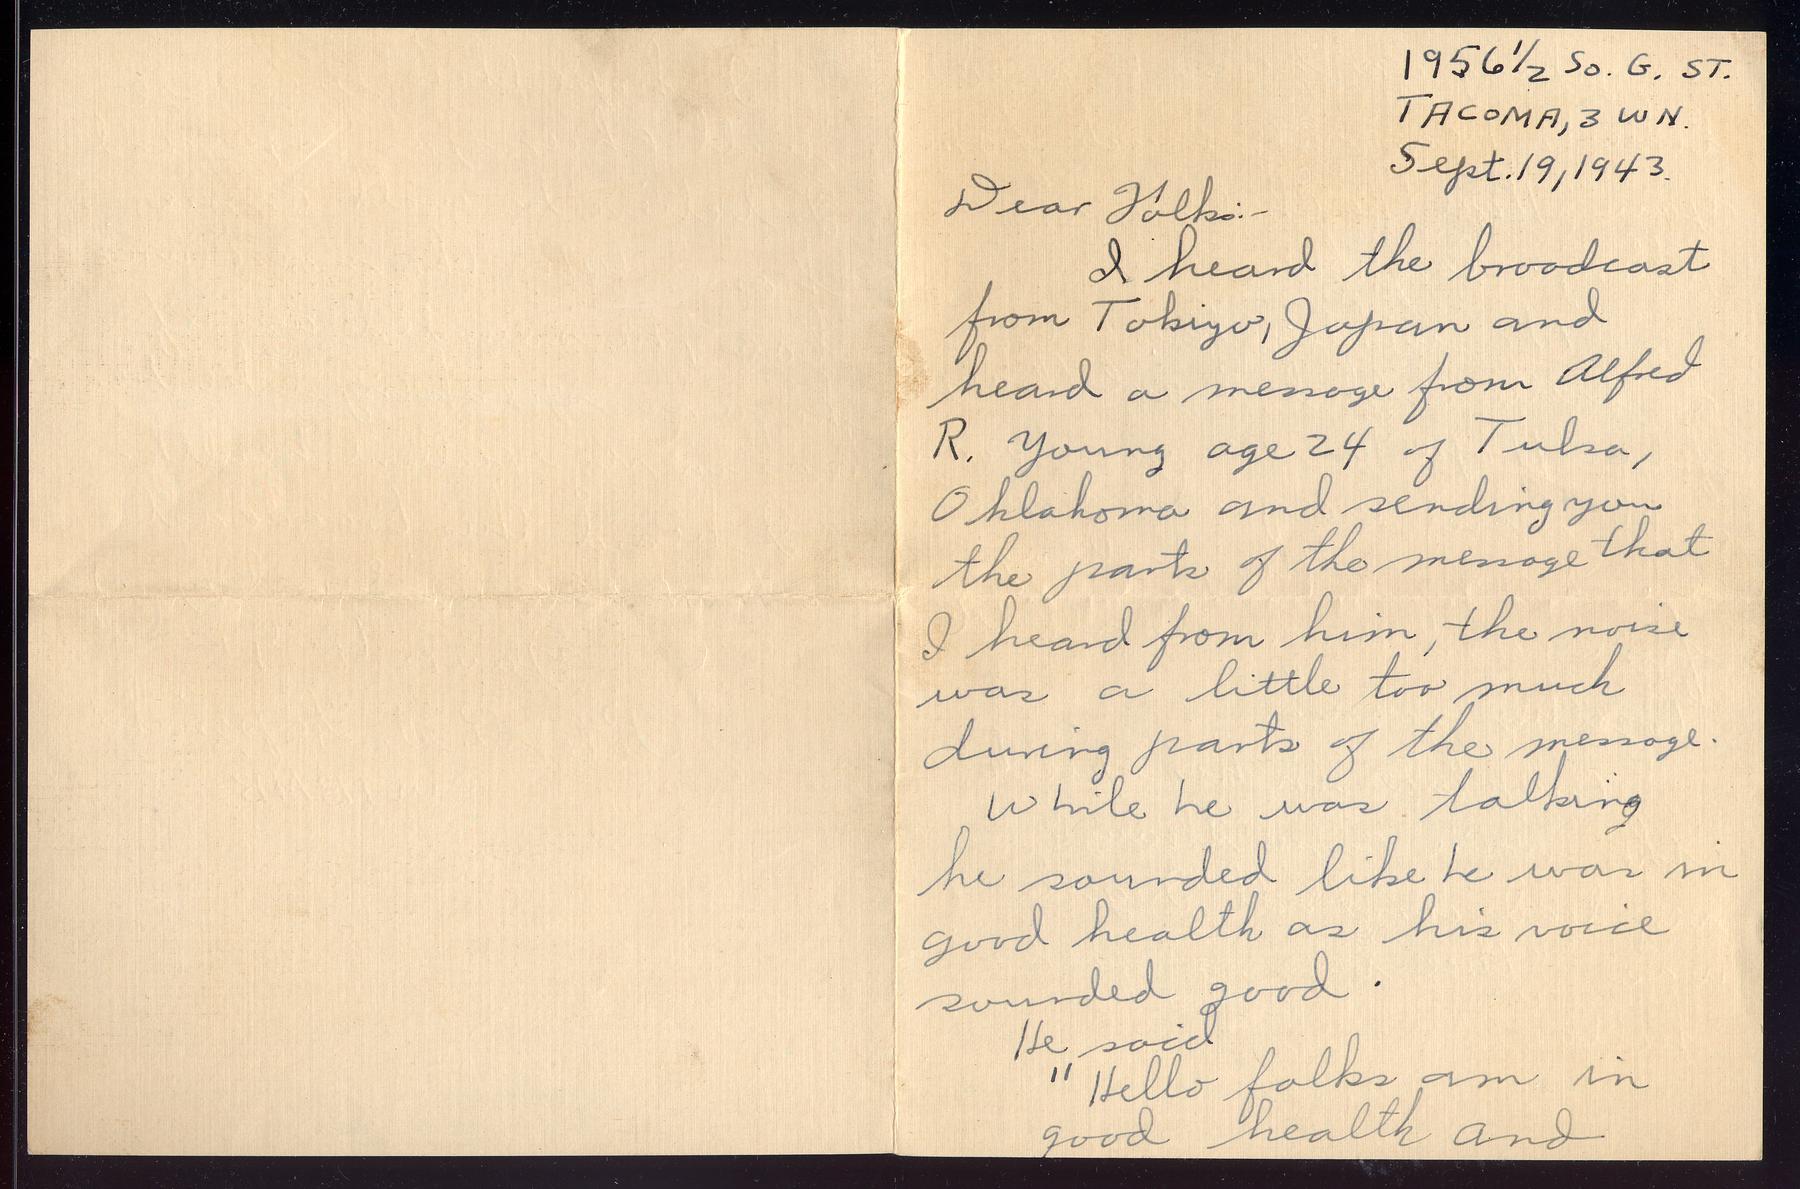 1956 1/2 So. G. ST.
TACOMA, 3 WN.
Sept. 19, 1943.
Dear Folks:-
I heard the broadcast
from Tokiyo, Japan and
heard a message from Alfred
R. Young age 24 of Tulsa,
Oklahoma and sending you
the parts of the message that
I heard from him, the noise
was a little too much
during parts of the message.
While he was talking
he sounded like he was in
good health as his voice
sounded good.
He said
"Hello folks am in
good health and